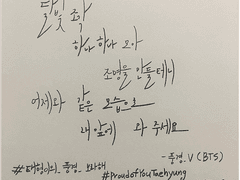 달빛 조각
하나 하나 모아
조명을 만들테니
어제와 같은 모습으로
내 앞에 와 주세요
-풍경. V (BTS)
#태형이의_풍경_보라해
#ProudofYouTaehyung